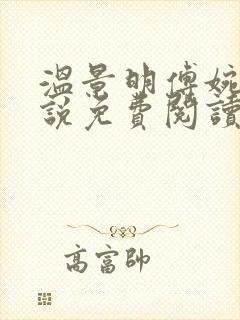 溫景明傅婉
說免費閱讀
高富帥